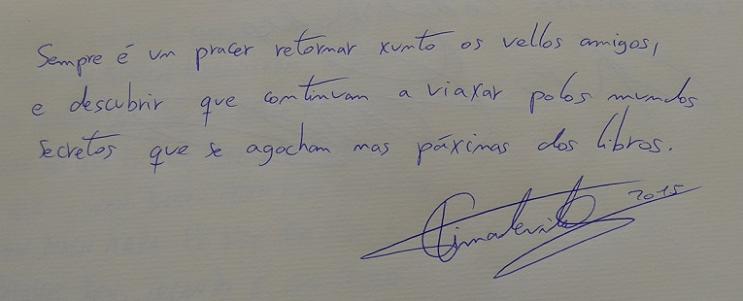 Sempre é un pracer retornar xunto os vellos amigos,
e descubrir que continuan a viaxar polos mundos
secretos que se agochan nas páxinas dos libros.
2015